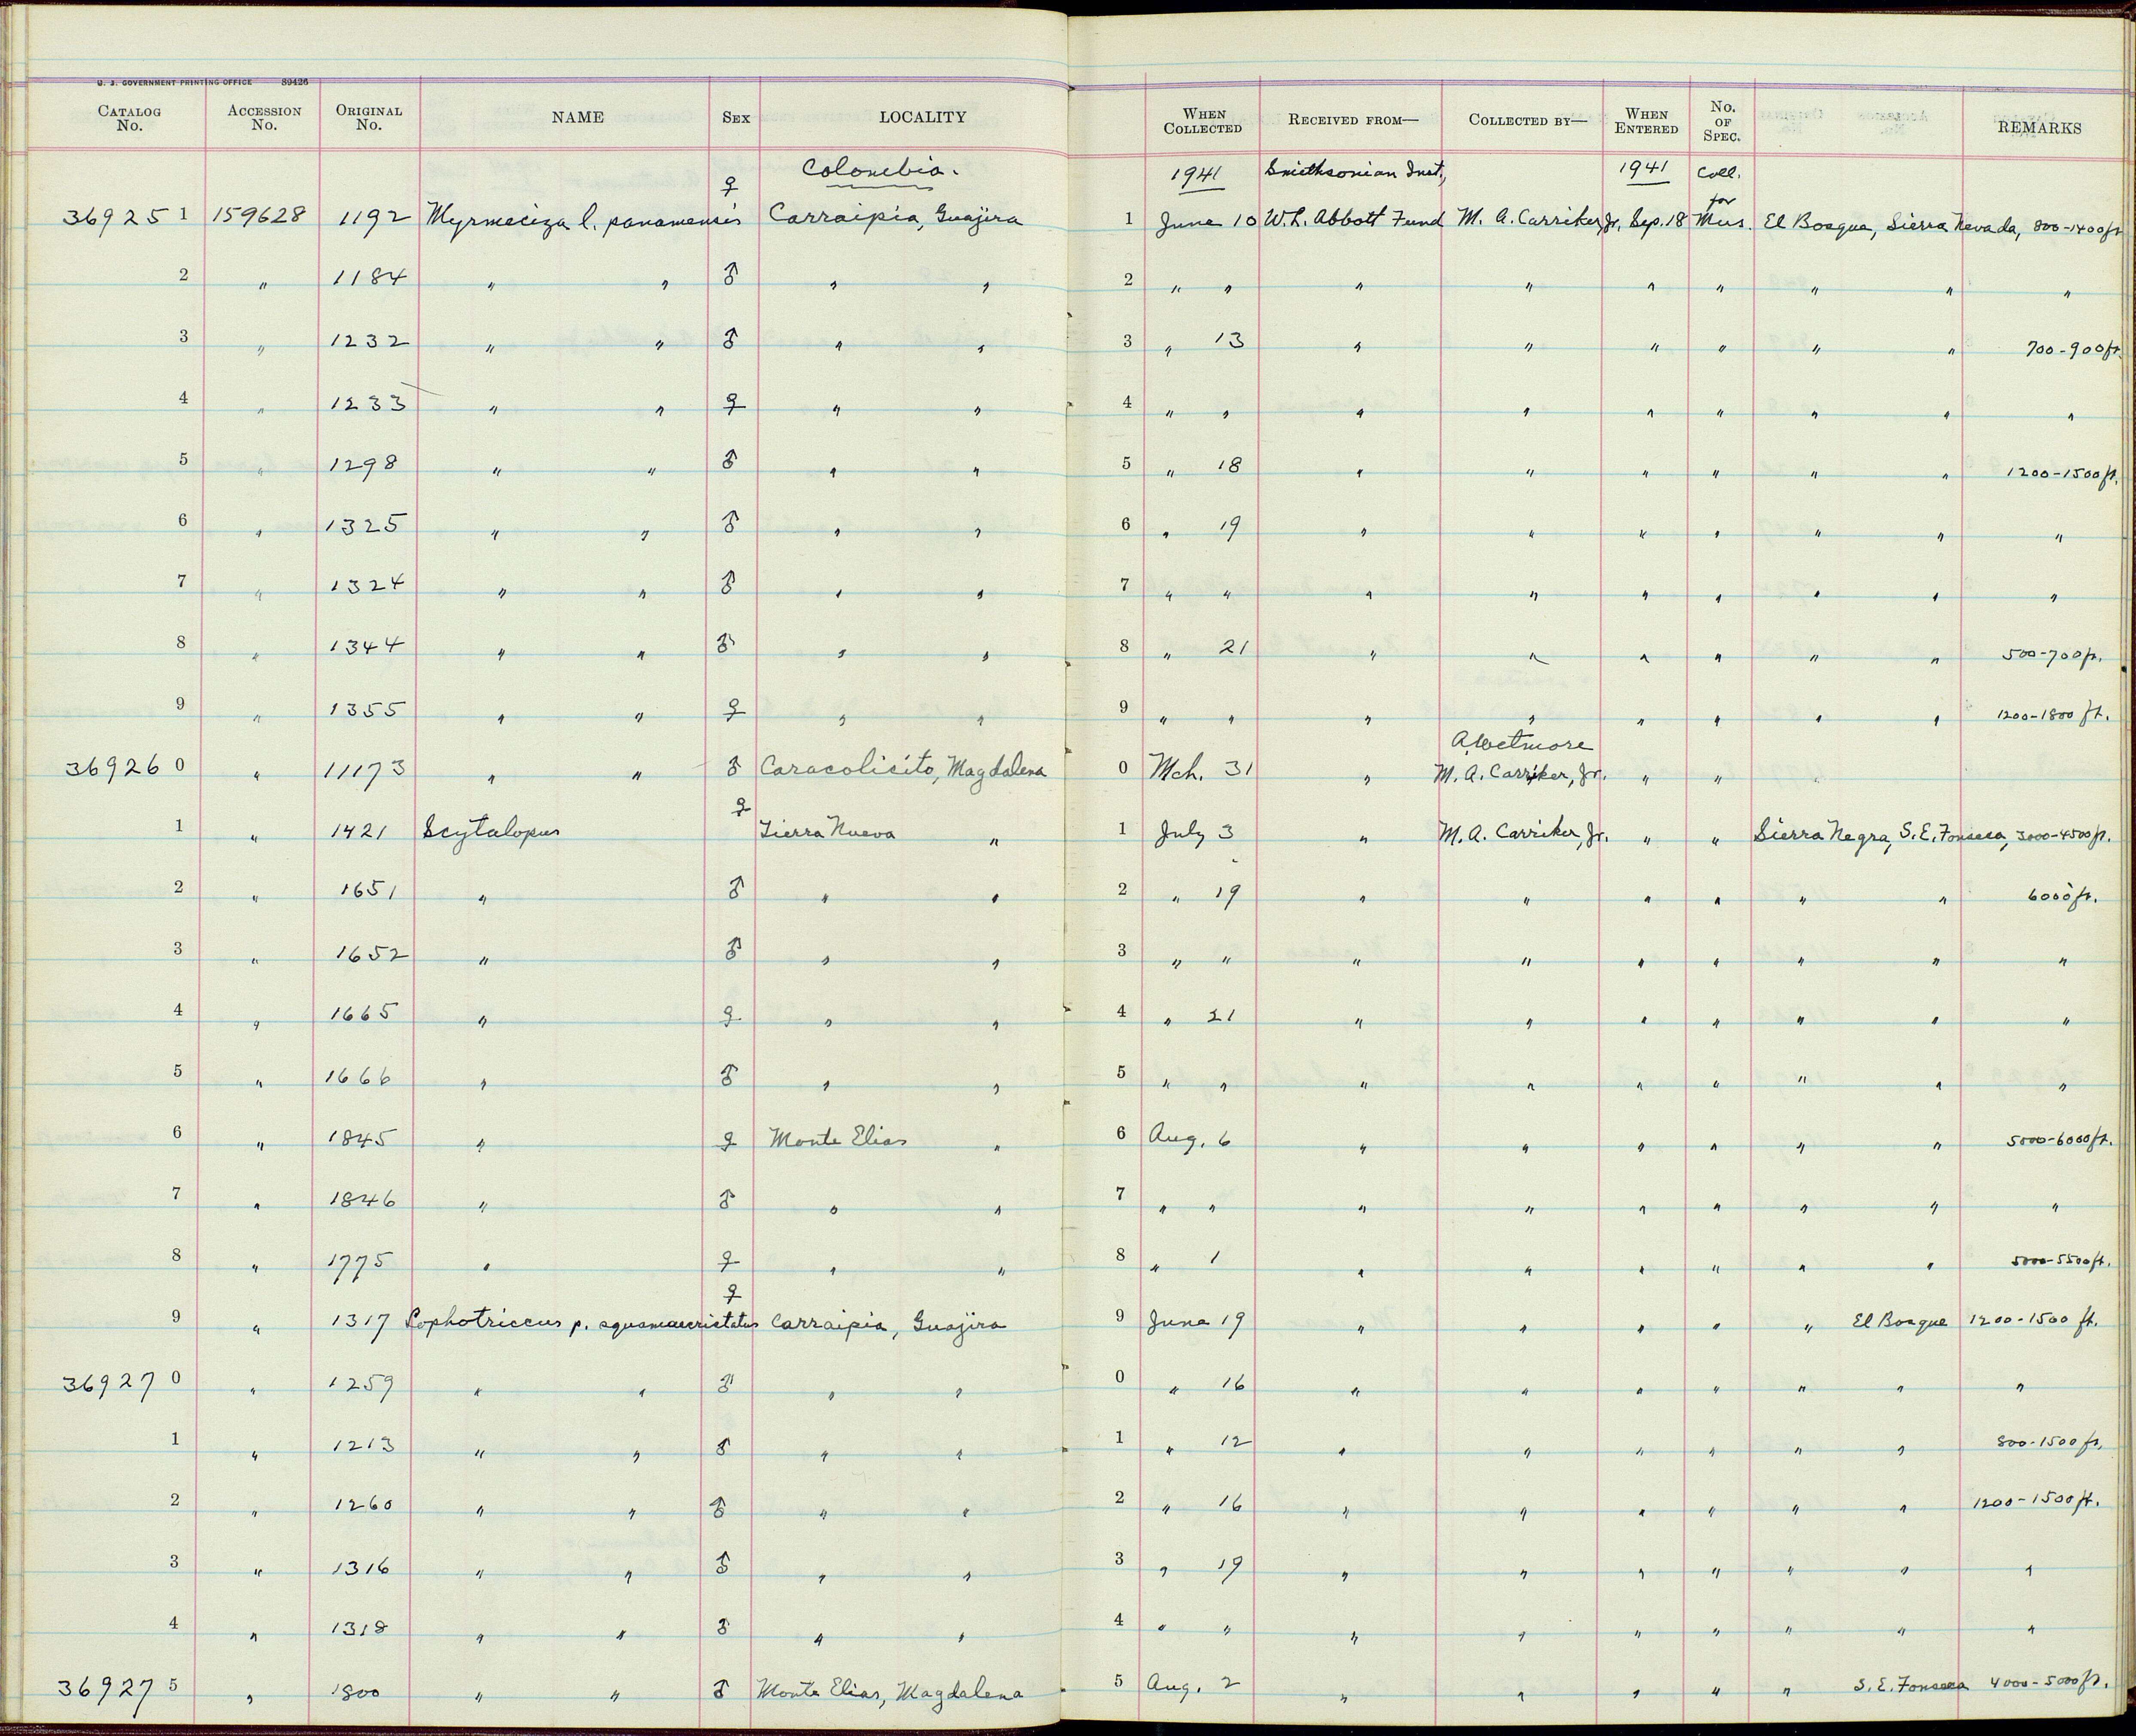 U. S. GOVERNMENT PRINTING OFFICE 89426
CATALOG No. ACCESSION No. ORIGINAL No. NAME SEX LOCALITY WHEN COLLECTED RECEIVED FROM— COLLECTED BY— WHEN ENTERED No. OF SPEC. REMARKS
Colombia. 1941 Smithsonian Inst., 1941 Coll. for
369251 159628 1192 Myrmeciza l. panamensis ♀ Carraipia, Guajira 1 June 10 W. L. Abbott Fund M. A. Carriker, Jr. Sep. 18 Mus. El Bosque, Sierra Nevada, 800-1400 ft
2 " 1184 " " ♂ " " 2 " " " " " " " " "
3 " 1232 " " ♂ " " 3 " 13 " " " " " " 700-900 ft.
4 " 1233 " " ♀ " " 4 " " " " " " " " "
5 " 1298 " " ♂ " " 5 " 18 " " " " " " 1200-1500 ft.
6 " 1325 " " ♂ " " 6 " 19 " " " " " " "
7 " 1324 " " ♂ " " 7 " " " " " " " " "
8 " 1344 " " ♂ " " 8 " 21 " " " " " " 500-700 ft.
9 " 1355 " " ♀ " " 9 " " " " " " " " 1200-1800 ft.
A. Wetmore
369260 " 11173 " " ♂ Caracolicito, Magdalena 0 Mch. 31 " M. A. Carriker, Jr. " "
1 " 1421 Scytalopus ♀ Tierra Nueva " 1 July 3 " M. A. Carriker, Jr. " " Sierra Negra, S. E. Fonseca, 3000-4500 ft.
2 " 1651 " ♂ " " 2 " 19 " " " " " " 6000 ft.
3 " 1652 " ♂ " " 3 " " " " " " " " "
4 " 1665 " ♀ " " 4 " 21 " " " " " " "
5 " 1666 " ♂ " " 5 " " " " " " " " "
6 " 1845 " ♀ Monte Elias " 6 Aug. 6 " " " " " " 5000-6000 ft.
7 " 1846 " ♂ " " 7 " " " " " " " " "
8 " 1775 " ♀ " " 8 " 1 " " " " " " 5000-5500 ft.
9 " 1317 Lophotriccus p. squamaecristatus ♀ Carraipia, Guajira 9 June 19 " " " " " El Bosque 1200-1500 ft.
369270 " 1259 " " ♂ " " 0 " 16 " " " " " " "
1 " 1213 " " ♂ " " 1 " 12 " " " " " " 800-1500 ft.
2 " 1260 " " ♂ " " 2 " 16 " " " " " " 1200-1500 ft.
3 " 1316 " " ♂ " " 3 " 19 " " " " " " "
4 " 1318 " " ♂ " " 4 " " " " " " " " "
369275 " 1800 " " ♂ Monte Elias, Magdalena 5 Aug. 2 " " " " " S. E. Fonseca 4000-5000 ft.